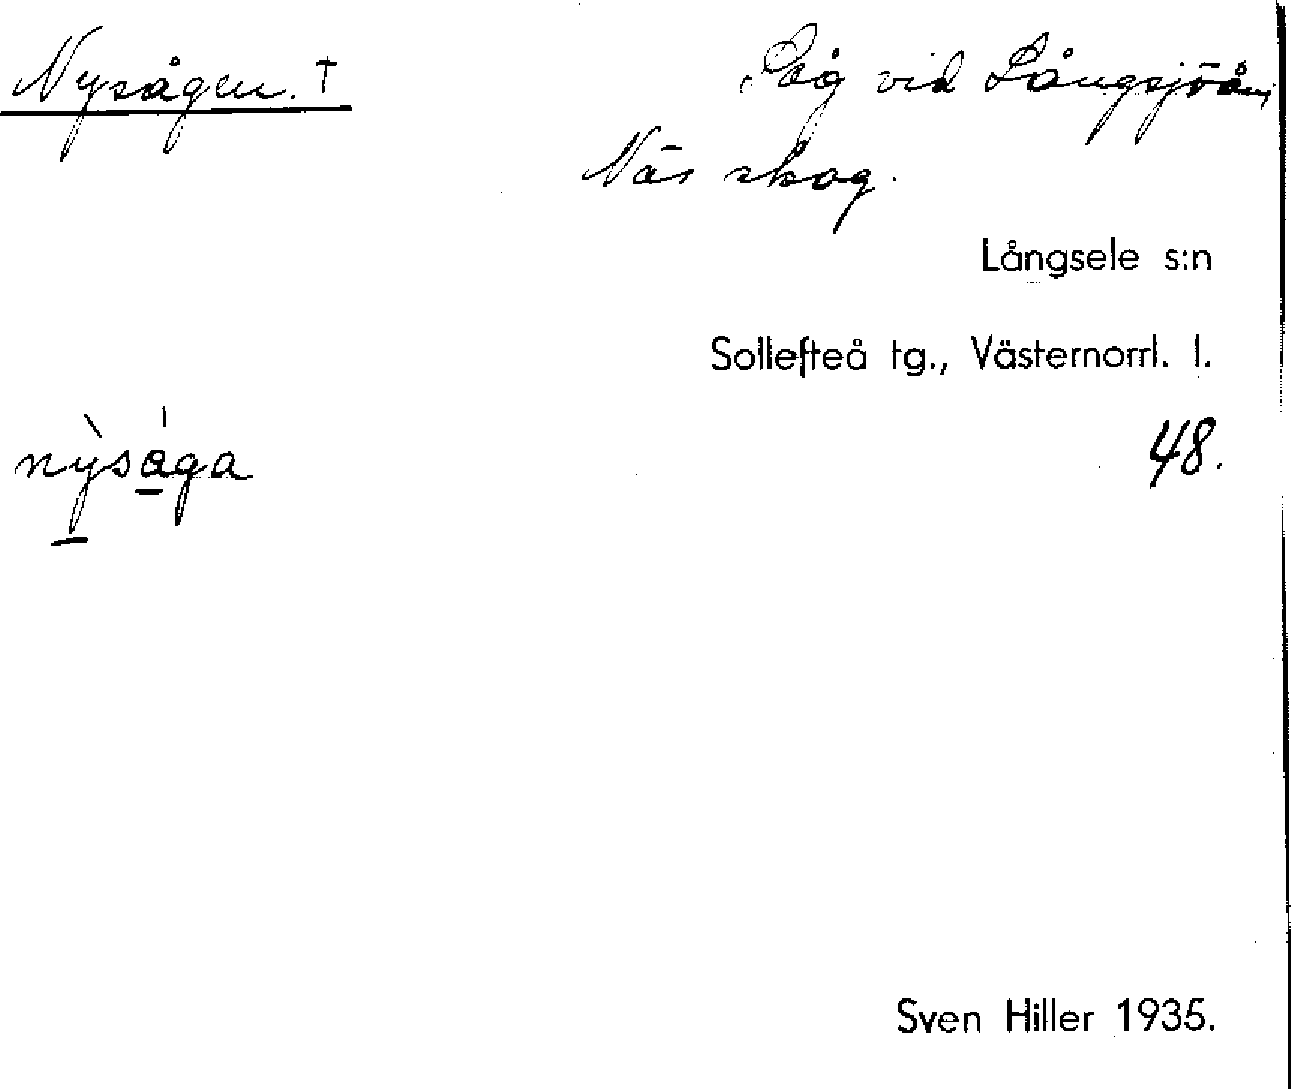 Nysågen. †
Såg vid Långsjöån,
Näs skog.
Långsele s:n
Sollefteå tg., Västernorrl. l.
nỳsága
48.
Sven Hiller 1935.